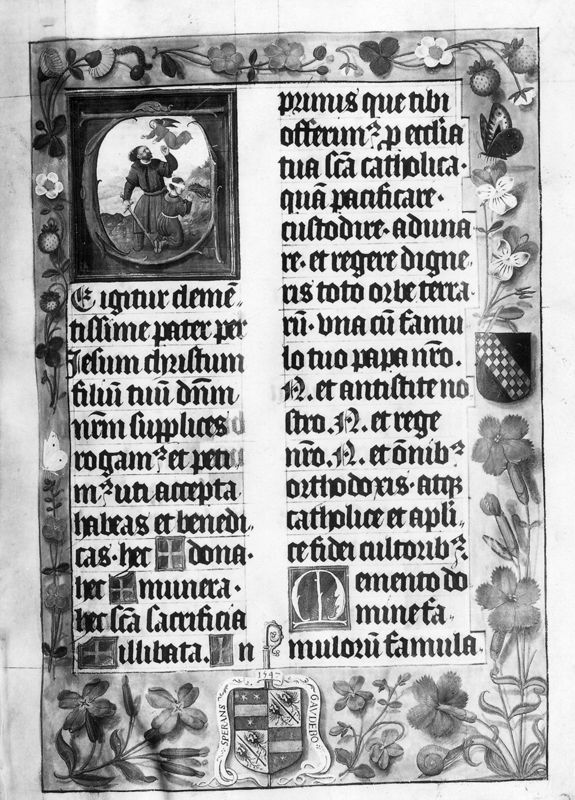 E igitur clemē-
tissime pater per
Jesum christum
filiū tuū dn̄m
nr̄m supplices
rogamꝰ et peti
mꝰ uti accepta
habeas et benedi-
cas · hec ✠ dona ·
hec ✠ munera ·
hec sc̄a sacrificia
✠ illibata. In
primis que tibi
offerimꝰ p̱ eccl̄ia
tua sc̄a catholica ·
quā pacificare ·
custodire · aduna
re · et regere digne-
ris toto orbe terra-
rū · vna cū famu
lo tuo papa nr̄o .
N. et antistite no
stro . N. et rege
nr̄o . N. et ōnibꝰ
orthodoxis · atqꝫ
catholice et apli-
ce fidei cultoribꝰ .
Memento do
mine fa-
mulorū famula-
SPERANS
GAVDEBO